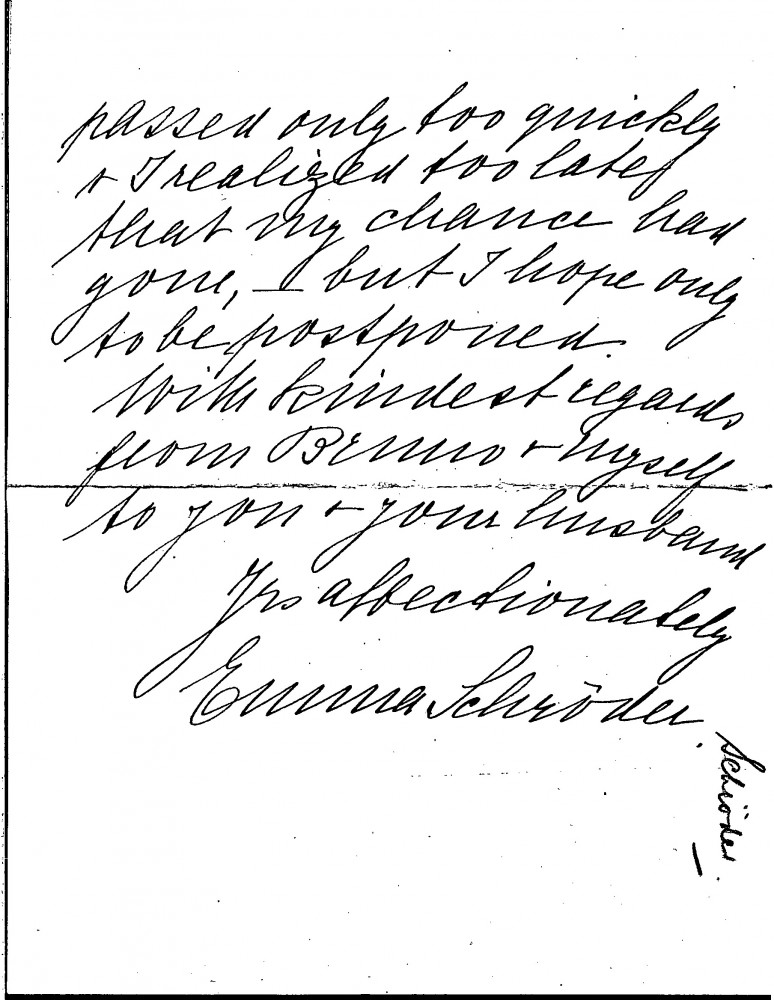 passed only too quickly
& I realized too late
that my chance had
gone, — but I hope only
to be postponed.
With kindest regards
from Bruno & myself
to you & your husband
Yrs affectionately
Emma Schröder.
Schröder.